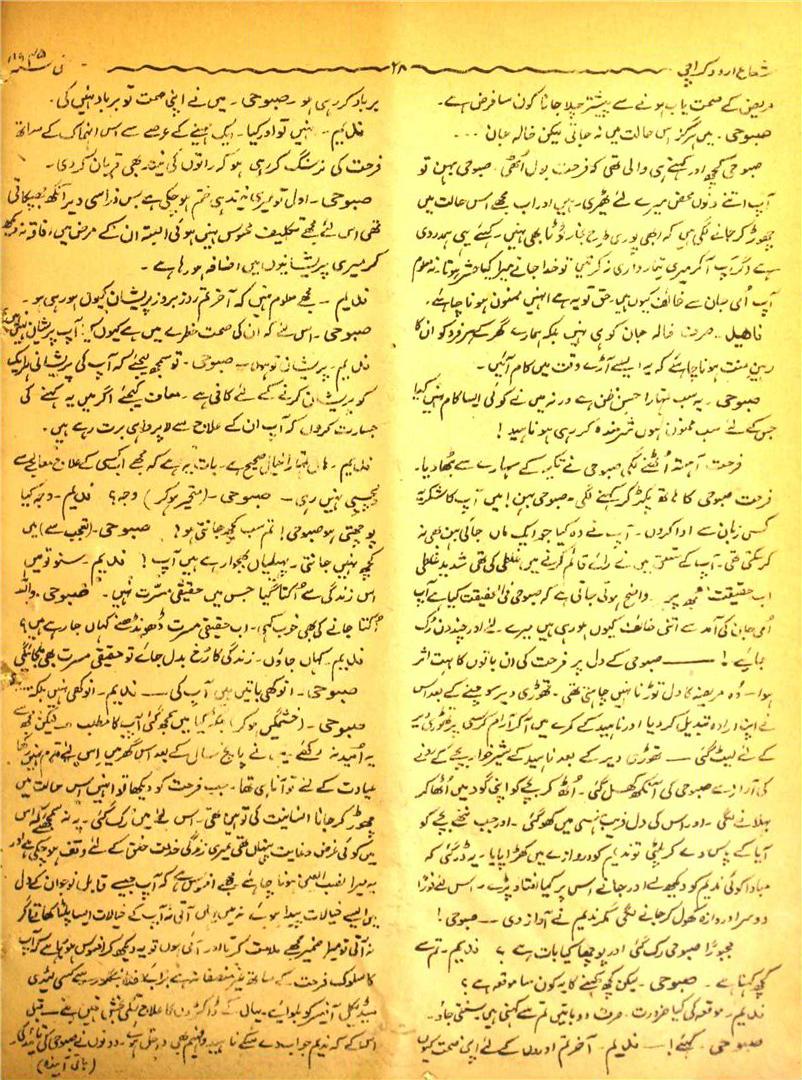 شعاع اردو کراچی
۲۸
مریض کے صحت یاب ہونے سے پیشتر چلا جانا کون سا فرض ہے۔
صبوحی۔ میں ہرگز اس حالت میں نہ جاتی لیکن خالہ جان ...
صبوحی کچھ اور کہنے ہی والی تھی کہ فرحت بول اُٹھی۔ صبوحی بہن تو
آپ اتنے دنوں محض میرے لئے ٹھیری رہیں اور اب مجھے اس حالت میں
چھوڑ کر جانے لگی ہیں کہ ابھی پوری طرح بخار ٹوٹا بھی نہیں۔ کہئے یہی ہمدردی
ہے اگر آپ آ کر میری تیمارداری نہ کرتیں تو خدا جانے میرا کیا حشر ہوتا۔ نہ معلوم
آپ اُمی جان سے خائف کیوں ہیں۔ حق تو یہ ہے انہیں ممنون ہونا چاہئے۔
ناھیل۔ صرف خالہ جان کو ہی نہیں بلکہ ہمارے گھر کے ہر فرد کو ان کا
رہینِ منت ہونا چاہئے کہ یہ ایسے آڑے وقت میں کام آئیں۔
صبوحی۔ یہ سب تمہارا حسن ظن ہے ورنہ میں نے کوئی ایسا کام نہیں کیا
جس کے لئے سب ممنون ہوں شرمندہ کر رہی ہو ناہید!
فرحت آہستہ اُٹھنے لگی صبوحی نے تکیہ کے سہارے سے بٹھا دیا۔
فرحت صبوحی کا ہاتھ پکڑ کر کہنے لگی۔ صبوحی بہن! میں آپ کا شکریہ
کس زبان سے ادا کروں۔ آپ نے وہ کیا جو ایک ماں جائی بہن بھی نہ
کر سکتی تھی۔ آپ کے متعلق میں نے رائے قائم کرنے میں غلطی کی تھی شدید غلطی
اب حقیقت مجھ پر واضح ہوتی جاتی ہے کہ صبوحی فی الحقیقت کیا ہے آپ
اُمی جان کی آمد سے اتنی خائف کیوں ہو رہی ہیں میرے لئے اور چند دن رُک
جایئے! —— صبوحی کے دل پر فرحت کی ان باتوں کا بہت اثر
ہوا۔ وہ مریضہ کا دل توڑنا نہیں چاہتی تھی۔ تھوڑی دیر سوچنے کے بعد اس
نے اپنا ارادہ تبدیل کر دیا اور ناہید کے کمرے میں آ کر آرام کرسی پر تھوڑی دیر
کے لئے لیٹ گئی — تھوڑی دیر کے بعد ناہید کے شیر خوار بچے کے رونے
کی آواز سے صبوحی کی آنکھ کھل گئی۔ اُٹھ کر بچے کو اپنی گود میں اُٹھا کر
بہلانے لگی۔ اور اس کی دل فریب ہنسی میں کھو گئی۔ اور جب ننھے بچے کو
آیا کے پاس دے کر پلٹی تو ندیم کو دروازے میں کھڑا پایا۔ یہ ڈر گئی کہ
مبادا کوئی ندیم کو دیکھ لے اور جانے اس پر کیا افتاد پڑے۔ اس لئے فوراً
دوسرا دروازہ کھول کر جانے لگی مگر ندیم نے آواز دی — صبوحی!
مجبوراً صبوحی رک گئی اور پوچھا کیا بات ہے؟ ندیم۔ تم سے
کچھ کہنا ہے۔ صبوحی۔ لیکن کچھ کہنے کا یہ کون سا موقعہ ہے؟
ندیم۔ موقعہ کی کیا ضرورت۔ صرف دو باتیں تم سے کہنی ہیں سنتی جاؤ۔
صبوحی۔ کہئے!۔ ندیم۔ آخر تم اوروں کے لئے اپنی صحت کیوں
برباد کر رہی ہو۔ صبوحی۔ میں نے اپنی صحت تو برباد نہیں کی۔
ندیم۔ نہیں تو اور کیا۔ ایک مہینے کے عرصے سے اس انہماک کے ساتھ
فرحت کی نرسنگ کر رہی ہو کہ راتوں کی نیند بھی قربان کر دی۔
صبوحی۔ اول تو میری نیند ہی ختم ہو چکی ہے بس ذرا سی دیر آنکھ جھپکاتی
تھی اس لئے مجھے تکلیف محسوس نہیں ہوئی البتہ ان کے مرض میں افاقہ نہ دیکھ
کر میری پریشانیوں میں اضافہ ہو رہا ہے۔
ندیم۔ مجھے معلوم نہیں کہ آخر تم روز بروز پریشان کیوں ہو رہی ہو۔
صبوحی۔ اس لئے کہ ان کی صحت خطرے میں ہے کیوں کیا آپ پریشان نہیں ہیں
ندیم۔ پریشانی تو ہے۔ صبوحی۔ تو سمجھ لیجئے کہ آپ کی پریشانی ہر ایک
کو پریشان کرنے کے لئے کافی ہے۔ معاف کیجئے اگر میں یہ کہنے کی
جسارت کروں کہ آپ ان کے علاج سے لاپرواہی برت رہے ہیں۔
ندیم۔ ہاں تمہارا خیال صحیح ہے۔ بات یہ ہے کہ مجھے اب کسی کے علاج معالجے سے
دلچسپی نہیں رہی — صبوحی۔ (متحیر ہو کر) وجہ؟ ندیم۔ وجہ کیا
پوچھتی ہو صبوحی! تم سب کچھ جانتی ہو! صبوحی۔ (تعجب سے) میں
کچھ نہیں جانتی۔ پہیلیاں بجھوا رہے ہیں آپ! ندیم۔ سنو تو میں
اس زندگی سے اُکتا گیا جس میں حقیقی مسرت نہیں۔ صبوحی۔ واللہ
اُکتا جانے کی بھی خوب کہی۔ اب حقیقی مسرت ڈھونڈھنے کہاں جا رہے ہیں؟
ندیم۔ کہاں جاؤں۔ زندگی کا رُخ بدل جائے تو حقیقی مسرت بھی مل جائیگی
صبوحی۔ انوکھی باتیں ہیں آپ کی — ندیم۔ انوکھی نہیں بلکہ ...
صبوحی۔ (خشمگیں ہو کر) بلکہ کیا میں سمجھ گئی آپ کا مطلب لیکن مجھ سے
یہ اُمید نہ رکھئے۔ میں نے پانچ سال کے بعد اس گھر میں اس لئے قدم نہیں رکھا
عیادت کے لئے تو آنا ہی تھا۔ جب فرحت کو دیکھا تو انہیں اس حالت میں
چھوڑ کر جانا انسانیت کی توہین تھی۔ اس لئے میں رُک گئی۔ یہ نہ سمجھئے کہ اس
میں کوئی غرض و غایت پنہاں تھی میری زندگی خدمت خلق کے لئے وقف ہو چکی ہے اور
یہ میرا نصب العین ہونا چاہئے مجھے افسوس ہے کہ آپ جیسے قابل نوجوان کے دل
میں ایسے خیالات پیدا ہوئے نہ میں یہاں آتی نہ آپ کے خیالات ایسا پلٹا کھاتے اگر
نہ آتی تو میرا ضمیر مجھے ملامت کرتا اور آئی ہوں تو یہ دیکھ کر افسوس ہو رہا ہے کہ آپ
کا سلوک فرحت کے ساتھ غیر منصفانہ ہے سے کسی لیڈی
میڈیکل آفیسر کو بلوایئے۔ یہاں کے ڈاکٹروں کا علاج تسلی بخش نہیں ہے — قبل
اس کے کہ ندیم جواب دے سکے ناہید و فہیم بھی داخل ہوئے۔ دونوں نے صبوحی کی تائید کی۔
(باقی آیندہ)